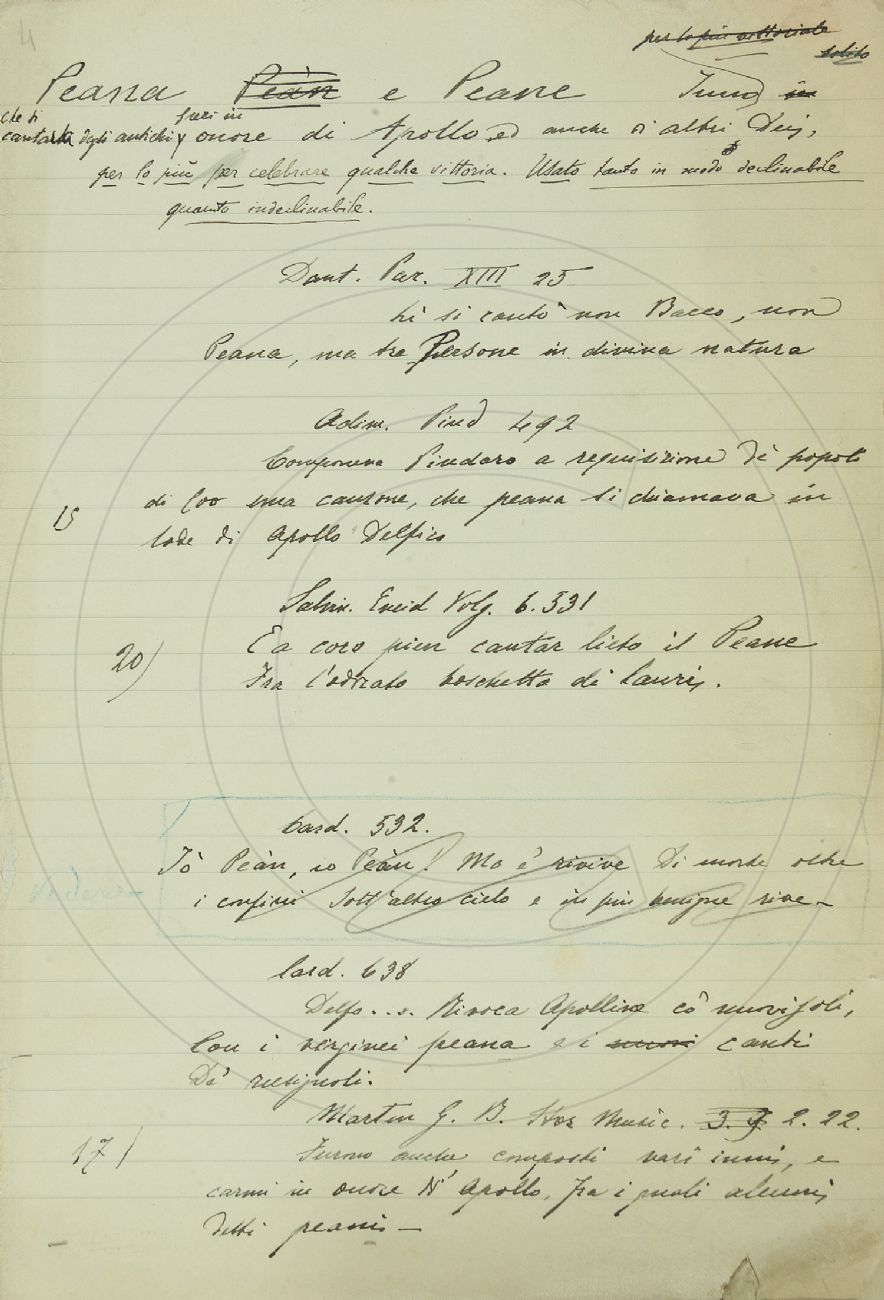 4
per lo più vittoriale
solito
Peana Peàn e Peane Inno in
che si
cantava dagli antichi in onore di Apollo ed anche di altri Dei,
per lo più per celebrare qualche vittoria. Usato tanto in modo declinabile
quanto indeclinabile.
Dant. Par. XIII 25
Lì si cantò non Bacco, non
Peana, ma tre Persone in divina natura
Adim. Pind 492
Componeva Pindaro a requisizione de' popoli
15 di Coo una canzone, che peana si chiamava in
lode di Apollo Delfico
Salvin. Eneid Volg. 6. 331
20) E a coro pien cantar lieto il Peane
Fra l'odorato boschetto di lauri.
Card. 532.
Iò Peàn, io Peàn! Ma e' rivive Di morte oltre
i confini Sott'altro cielo e in più benigne rive -
Card. 638
Delfo... Rivoca Apolline co' nuovi soli,
Con i verginei peana e i nuovi canti
De' rusignoli.
Martin G. B. Stor Music. 3. 2. 22.
17) Furono anche composti vari inni, e
carmi in onore d'Apollo, fra i quali alcuni
detti peani -